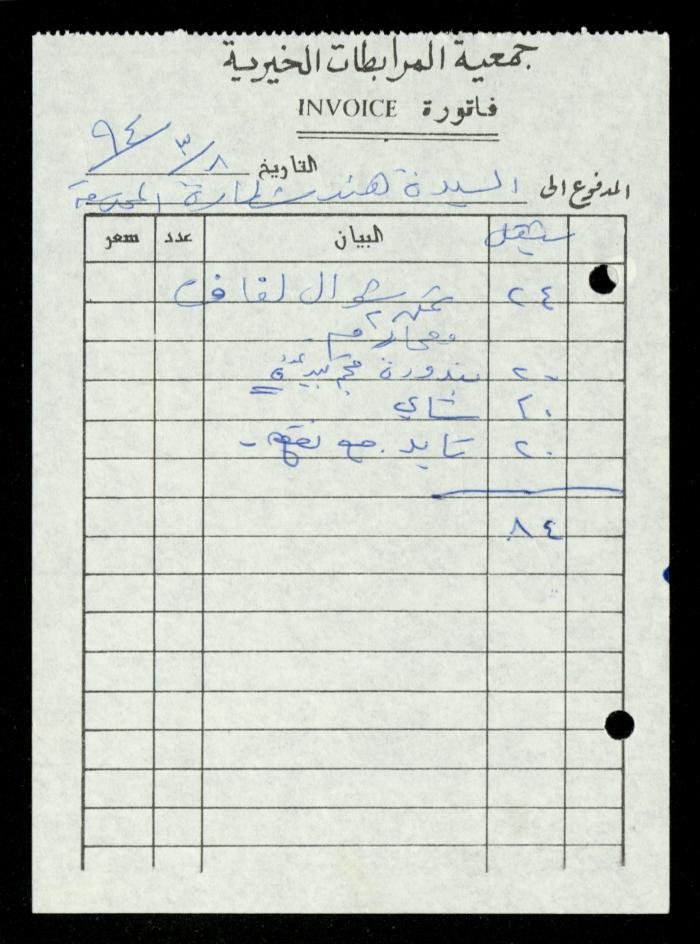 جمعية المرابطات الخيرية
فاتورة INVOICE
التاريخ ٩٤/٣/٨
المدفوع الى السيدة هند شطارة المحترمة
شيقل البيان عدد سعر
٢٤ ثمن ٢ شوال لفاف
ومحارم
٢٠ بندورة حجم كبير
٢٠ شاي
٢٠ تايد
٨٤